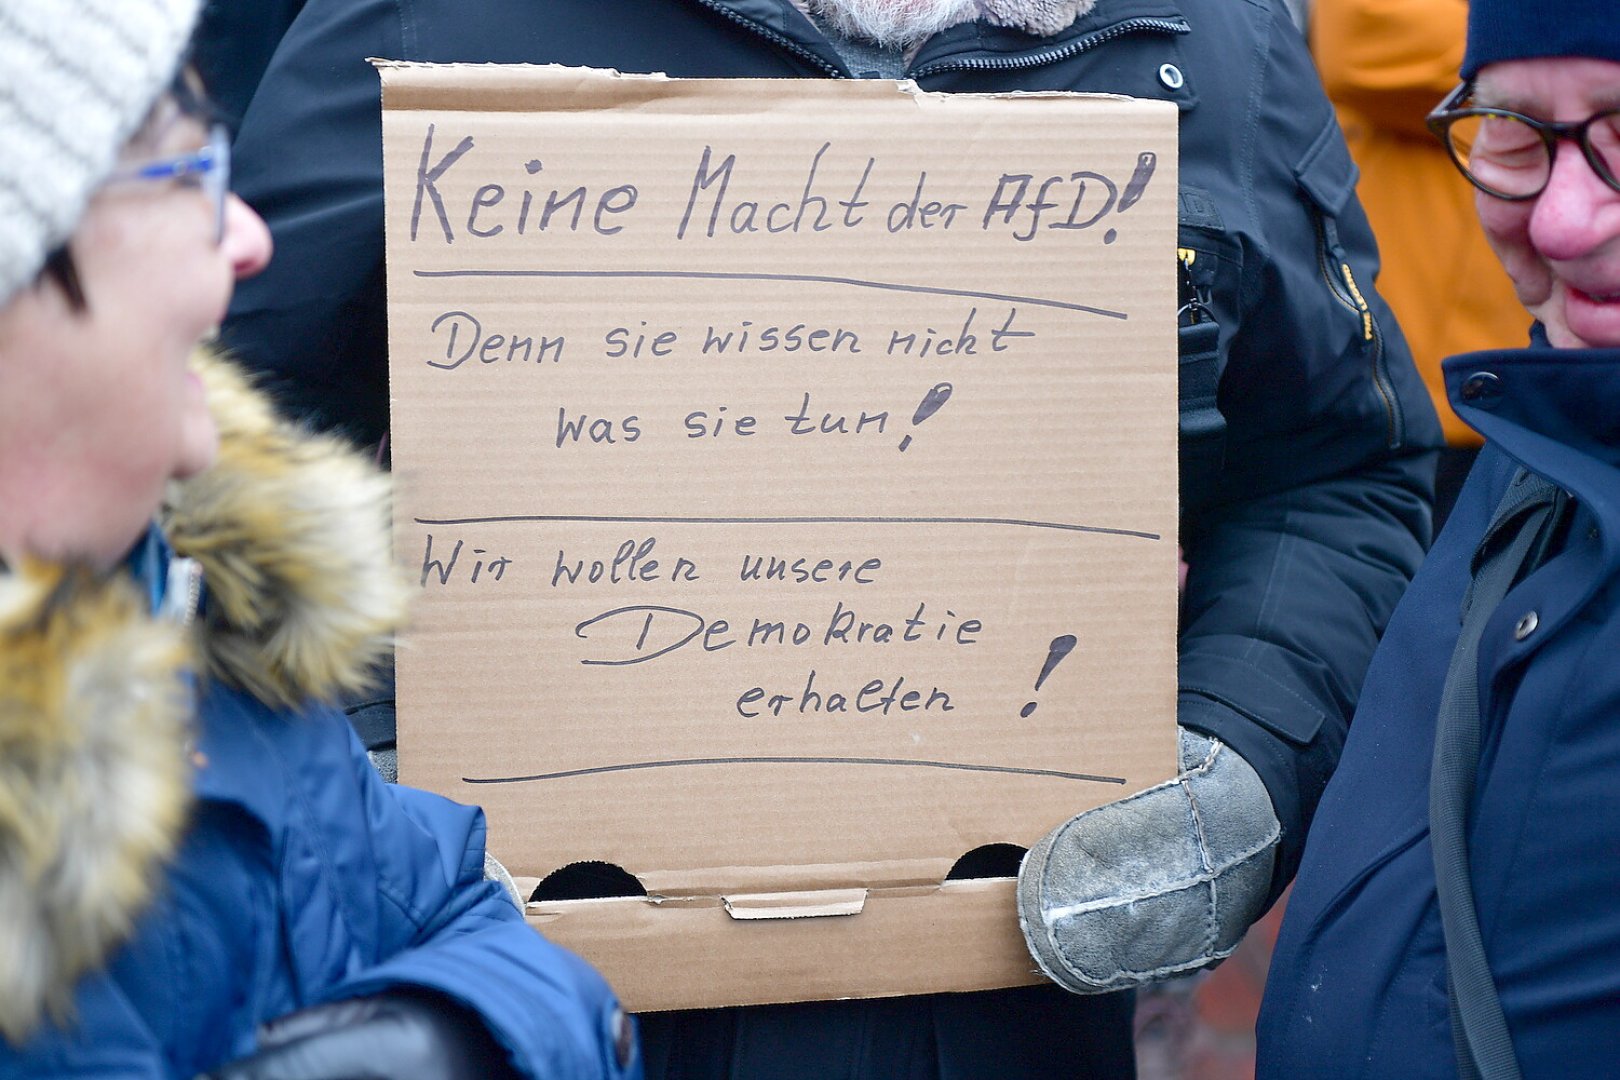 Keine Macht der AfD!
Denn sie wissen nicht
was sie tun!
Wir wollen unsere
Demokratie
erhalten !